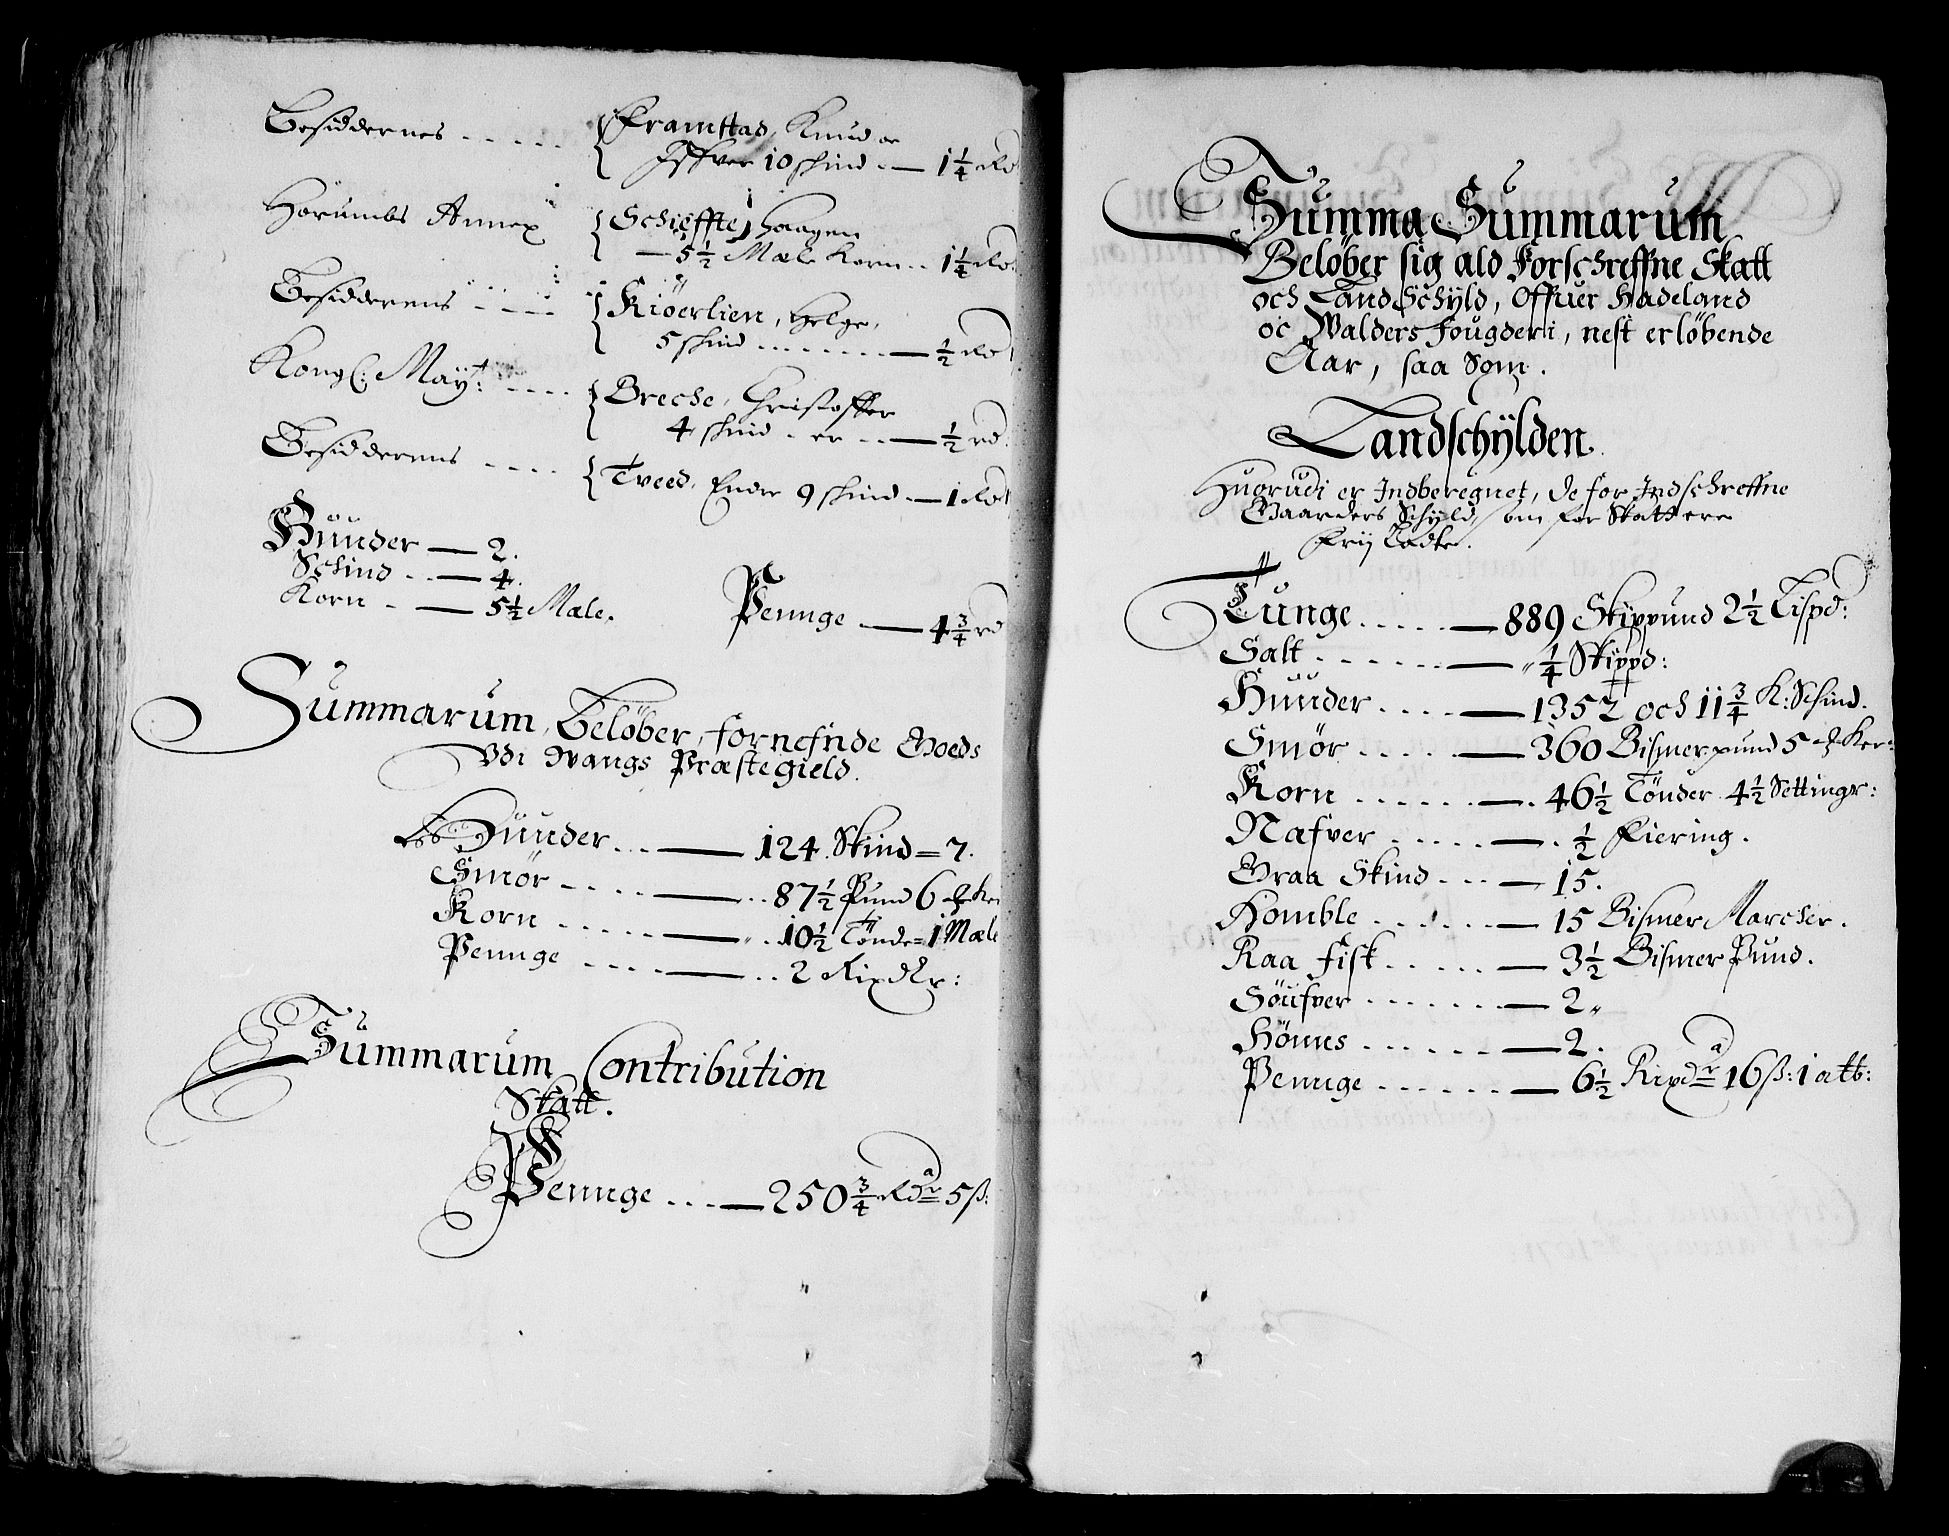 Besiddernes - - - - - { Framstad, Knud oc
Iffver 10 skind - — 1¼ Rd
Hörumbs Annex { Schieffte, Haagen
— 5½ Mæle Korn - - 1¼ Rd
Besidderens - - - - { Kiöerlien, Helge,
5 skind - - - - - — ½ Rd
Kongl: Maÿt: - - - - { Breche, Christoffer
4 skind - er - - — ½ rd
Besidderens - - - - { Tveed, Endre 9 skind — 1 Rd
Hüüder — 2.
Schind - - — 4.
Korn - — 5½ Mæle.
Pennge — 4¾ rd
Summarum, Beløber, fornefnde Goeds
Vdi Wangs Præstegield.
Hüüder - - - — 124. Skind = 7.
Smör - - - - — - - 87½ Pund 6 ₰ Ker
Korn - - - - - — - - 10½ Tönde = 1 Mæle
Pennge - - - - — - - 2 Rixdlr:
Summarum Contribution
Skatt.
Pennge - - - — 250¾ Rdr 5 ß:
Summa Summarum
Beløber sig ald Forschreffne Skatt
och Land Schÿld, Offuer Hadeland
oc Walders Fougderi, nest erløbende
Aar, saa Som.
Landschÿlden.
Huorudi er Indberegnet, de for Indschreffne
Gaarders Schÿld, som for Skatt ere
Frij Tadte.
Tunge - - - - - — 889 Skippund 2½ Lispd:
Salt - - - - - - — „ ¼ Skippd:
Hüüder - - - - — 1352 och 11¾ K: Schind.
Smør - - - - - — 360 Bismerpund 5 ₰ Ker:
Korn - - - - - - — 46½ Tönder 4½ Settingr:
Næfver - - - - - — - ½ Fiering.
Graa Skind - - - — 15.
Homble - - - - - — 15 Bismer Marcher.
Raa fisk - - - - - — 3½ Bismer Pund.
Söufver - - - - - - — 2 „
Hönns - - - - - - — 2.
Pennge - - - - - - — 6½ Rixdr 16 ß: 1 alb: